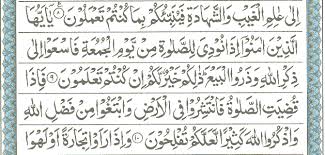 اِلٰى عٰلِمِ الْغَيْبِ وَالشَّهَادَةِ فَيُنَبِّئُكُمْ بِمَا كُنْتُمْ تَعْمَلُوْنَ ۸ يٰٓاَيُّهَا
الَّذِيْنَ اٰمَنُوْٓا اِذَا نُوْدِىَ لِلصَّلٰوةِ مِنْ يَّوْمِ الْجُمُعَةِ فَاسْعَوْا اِلٰى
ذِكْرِ اللّٰهِ وَذَرُوا الْبَيْعَ ؕ ذٰلِكُمْ خَيْرٌ لَّكُمْ اِنْ كُنْتُمْ تَعْلَمُوْنَ ۹ فَاِذَا
قُضِيَتِ الصَّلٰوةُ فَانْتَشِرُوْا فِى الْاَرْضِ وَابْتَغُوْا مِنْ فَضْلِ اللّٰهِ
وَاذْكُرُوا اللّٰهَ كَثِيْرًا لَّعَلَّكُمْ تُفْلِحُوْنَ ۱۰ وَاِذَا رَاَوْا تِجَارَةً اَوْ لَهْوَا